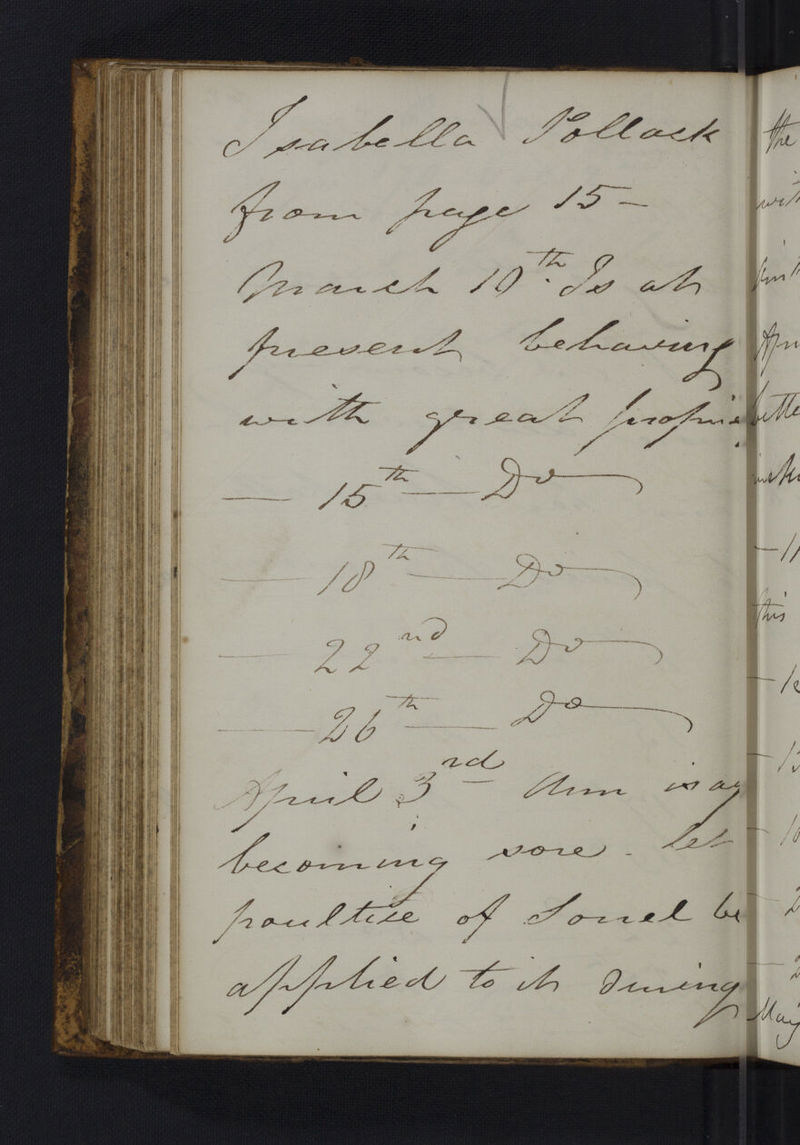 Isabella Pollock
from page 15 -
March 10th. Is at
present behaving
with great
— 15th — Do
— 18th — Do
— 22nd — Do
— 26th — Do
April 3rd - Arm is
becoming sore - let
poultice of Sorrel be
applied to it during
the
this
May